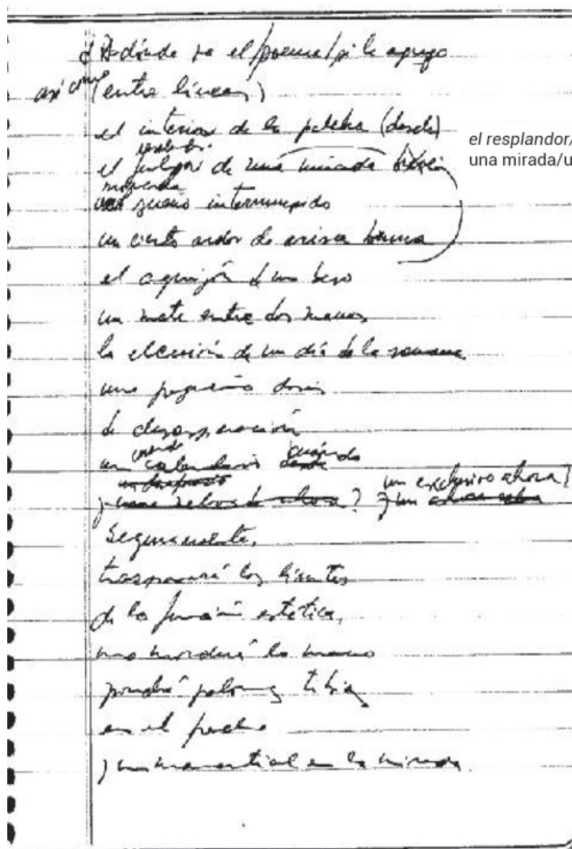 ¿A dónde va el/poema/si le agrego
así como (entre líneas)
el interior de la palabra (desde)
el fulgor de una mirada
el resplandor/
una mirada/u
sueño interrumpido
un cierto ardor de arisca
el aguijón de un beso
un mate entre dos manos
la elección de un día de la semana
una pequeña dosis
de desesperación
un calendario cuándo
un exclusivo ahora?
Seguramente,
traspasará los límites
de la función estética,
nos morderá la mano
pondrá palomas tibias
en el pecho
y un manantial en la mirada